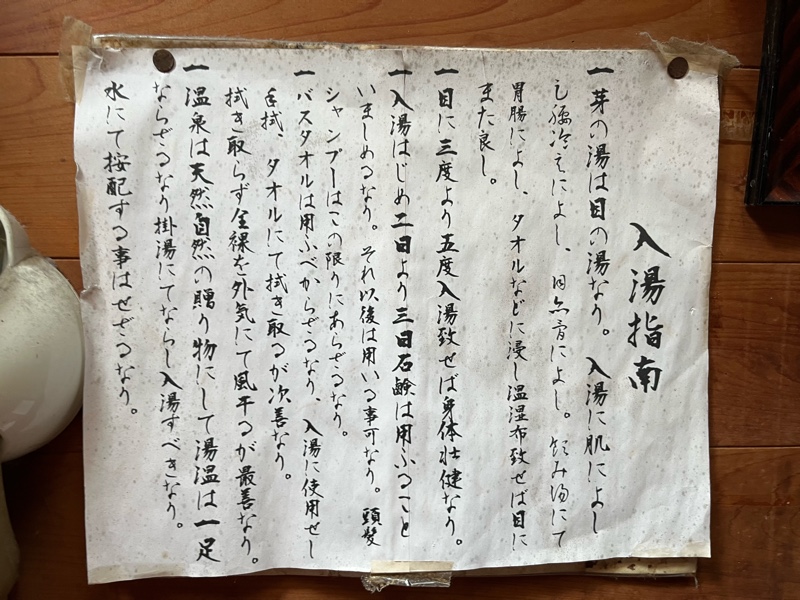 入湯指南
一芽の湯は目の湯なり。入湯に肌によし
腰冷えによし、によし。飲み湯にて
胃腸によし、タオルなどに浸し温湿布致せば目に
また良し。
一日に三度より五度入湯致せば身体壮健なり。
一入湯はじめ二日より三日石鹸は用ふること
いましめるなり。それ以後は用いる事可なり。頭髪
シャンプーはこの限りにあらざるなり。
一バスタオルは用ふべからざるなり、入湯に使用せし
手拭、タオルにて拭き取るが次善なり。
拭き取らず全裸を外気にて風干るが最善なり。
一温泉は天然自然の贈り物にして湯温は一足
ならざるなり掛湯にてならし入湯すべきなり。
水にて按配する事はせざるなり。